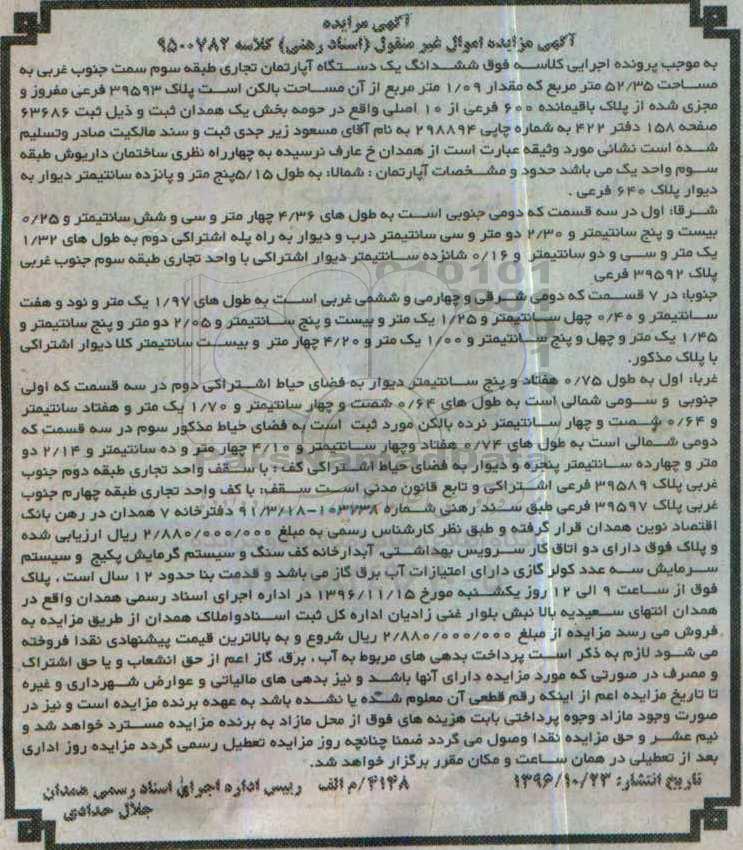 آگهی مزایده
آگهی مزایده اموال غیر منقول (اسناد رهنی) کلاسه ۹۵۰۰۷۸۲
به موجب پرونده اجرایی کلاسه فوق ششدانگ یک دستگاه آپارتمان تجاری طبقه سوم سمت جنوب غربی به
مساحت ۵۲/۳۵ متر مربع که مقدار ۱/۰۹ متر مربع از آن مساحت بالکن است پلاک ۳۹۵۹۳ فرعی مفروز و
مجزی شده از پلاک باقیمانده ۶۰۰ فرعی از ۱۰ اصلی واقع در حومه بخش یک همدان ثبت و ذیل ثبت ۶۳۶۸۶
صفحه ۱۵۸ دفتر ۴۲۲ به شماره چاپی ۲۹۸۸۹۴ به نام آقای مسعود زیر جدی ثبت و سند مالکیت صادر وتسلیم
شده است نشانی مورد وثیقه عبارت است از همدان خ عارف نرسیده به چهارراه نظری ساختمان داریوش طبقه
سوم واحد یک می باشد حدود و مشخصات آپارتمان : شمالا: به طول ۵/۱۵پنج متر و پانزده سانتیمتر دیوار به
دیوار پلاک ۶۴۰ فرعی .
شرقا: اول در سه قسمت که دومی جنوبی است به طول های ۴/۳۶ چهار متر و سی و شش سانتیمتر و ۰/۲۵
بیست و پنج سانتیمتر و ۲/۳۰ دو متر و سی سانتیمتر درب و دیوار به راه پله اشتراکی دوم به طول های ۱/۳۲
یک متر و سی و دو سانتیمتر و ۰/۱۶ شانزده سانتیمتر دیوار اشتراکی با واحد تجاری طبقه سوم جنوب غربی
پلاک ۳۹۵۹۲ فرعی
جنوبا: در ۷ قسمت که دومی شرقی و چهارمی و ششمی غربی است به طول های ۱/۹۷ یک متر و نود و هفت
سانتیمتر و ۰/۴۰ چهل سانتیمتر و ۱/۲۵ یک متر و بیست و پنج سانتیمتر و ۲/۰۵ دو متر و پنج سانتیمتر و
۱/۴۵ یک متر و چهل و پنج سانتیمتر و ۱/۰۰ یک متر و ۴/۲۰ چهار متر و بیست سانتیمتر کلا دیوار اشتراکی
با پلاک مذکور.
غربا: اول به طول ۰/۷۵ هفتاد و پنج سانتیمتر دیوار به فضای حیاط اشتراکی دوم در سه قسمت که اولی
جنوبی و سومی شمالی است به طول های ۰/۶۴ شصت و چهار سانتیمتر و ۱/۷۰ یک متر و هفتاد سانتیمتر
و ۰/۶۴ شصت و چهار سانتیمتر نرده بالکن مورد ثبت است به فضای حیاط مذکور سوم در سه قسمت که
دومی شمالی است به طول های ۰/۷۴ هفتاد وچهار سانتیمتر و ۴/۱۰ چهار متر و ده سانتیمتر و ۲/۱۴ دو
متر و چهارده سانتیمتر پنجره و دیوار به فضای حیاط اشتراکی کف : با سقف واحد تجاری طبقه دوم جنوب
غربی پلاک ۳۹۵۸۹ فرعی اشتراکی و تابع قانون مدنی است سقف: با کف واحد تجاری طبقه چهارم جنوب
غربی پلاک ۳۹۵۹۷ فرعی طبق سند رهنی شماره ۱۰۳۲۳۸-۹۱/۳/۱۸ دفترخانه ۷ همدان در رهن بانک
اقتصاد نوین همدان قرار گرفته و طبق نظر کارشناس رسمی به مبلغ ۲/۸۸۰/۰۰۰/۰۰۰ ریال ارزیابی شده
و پلاک فوق دارای دو اتاق کار سرویس بهداشتی، آبدارخانه کف سنگ و سیستم گرمایش پکیج و سیستم
سرمایش سه عدد کولر گازی دارای امتیازات آب برق گاز می باشد و قدمت بنا حدود ۱۲ سال است . پلاک
فوق از ساعت ۹ الی ۱۲ روز یکشنبه مورخ ۱۳۹۶/۱۱/۱۵ در اداره اجرای اسناد رسمی همدان واقع در
همدان انتهای سعیدیه بالا نبش بلوار غنی زادیان اداره کل ثبت اسنادواملاک همدان از طریق مزایده به
فروش می رسد مزایده از مبلغ ۲/۸۸۰/۰۰۰/۰۰۰ ریال شروع و به بالاترین قیمت پیشنهادی نقدا فروخته
می شود لازم به ذکر است پرداخت بدهی های مربوط به آب ، برق، گاز اعم از حق انشعاب و یا حق اشتراک
و مصرف در صورتی که مورد مزایده دارای آنها باشد و نیز بدهی های مالیاتی و عوارض شهرداری و غیره
تا تاریخ مزایده اعم از اینکه رقم قطعی آن معلوم شده یا نشده باشد به عهده برنده مزایده است و نیز در
صورت وجود مازاد وجوه پرداختی بابت هزینه های فوق از محل مازاد به برنده مزایده مسترد خواهد شد و
نیم عشر و حق مزایده نقدا وصول می گردد ضمنا چنانچه روز مزایده تعطیل رسمی گردد مزایده روز اداری
بعد از تعطیلی در همان ساعت و مکان مقرر برگزار خواهد شد.
تاریخ انتشار: ۱۳۹۶/۱۰/۲۳ ۴۱۴۸/م الف رییس اداره اجرای اسناد رسمی همدان
جلال حدادی